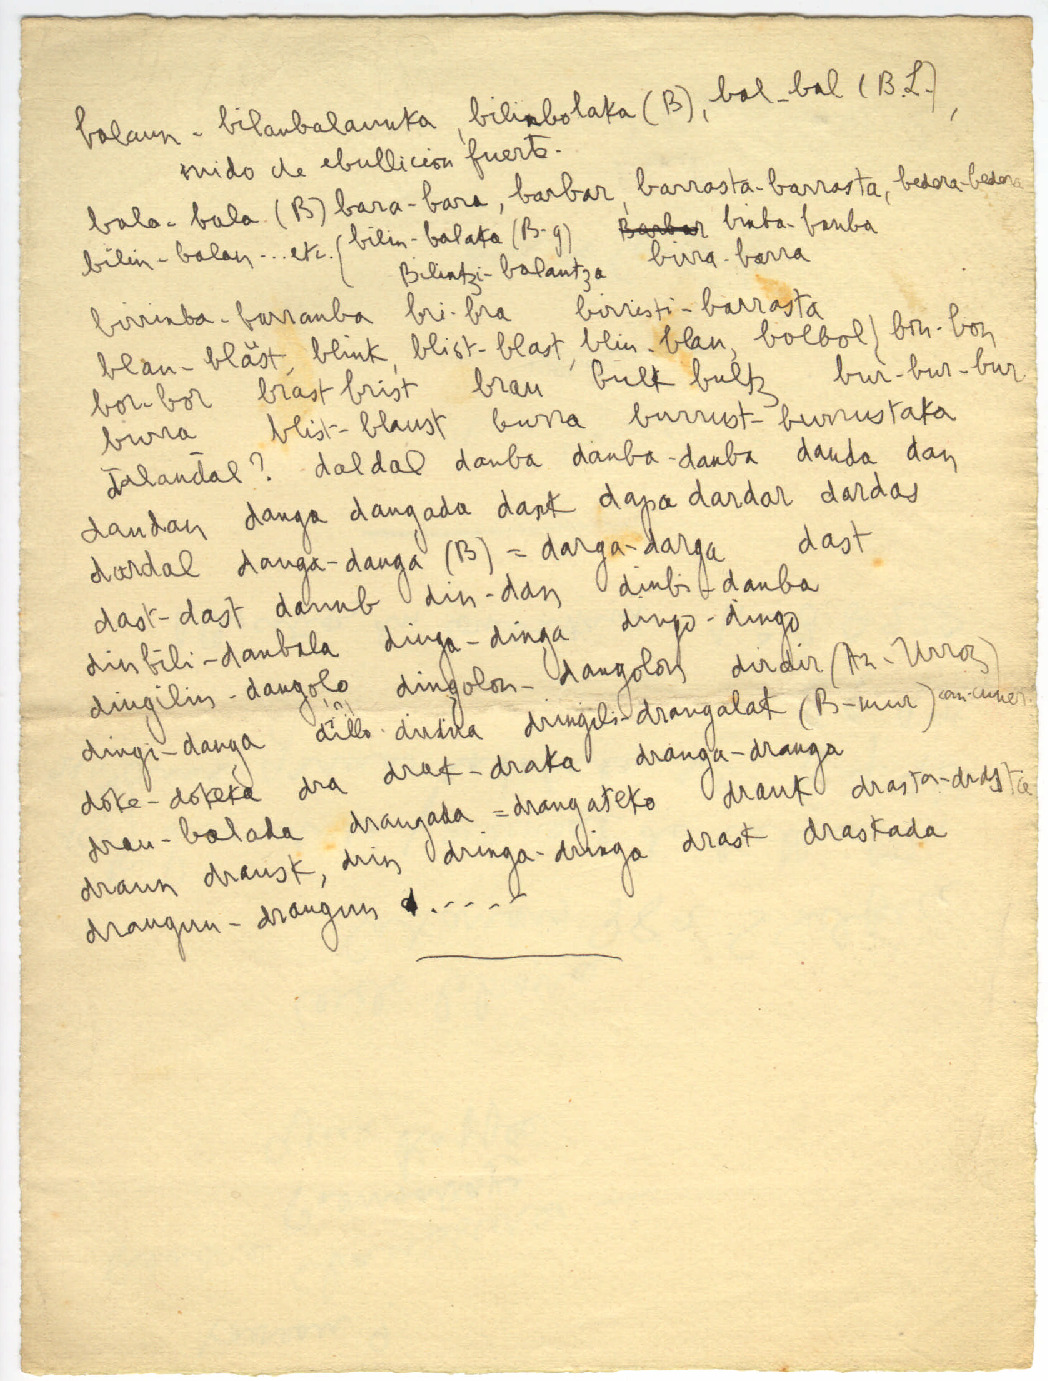 balaun - bilanbalaunka, bilinbolaka (B), bal-bal (B.L.),
ruido de ebullicion fuerte.
bala-bala (B) bara-bara, barbar, barrasta-barrasta, bedera-bedera
bilin-balan...etc. (bilin-balaka (B-g) Barbar binba-banba
Bilintzi-balantza birra-barra
birrinba-barranba bri-bra birristi-barrasta
blau-bläst, blink, blist-blast, blin-blan, bolbol) bon-bon
bor-bor brast brist brau bulk bultz bur-bur-bur
burra blist-blaust burra burrust-burrustaka
dalandal? daldal danba danba-danba danda dan
dandan danga dangada dank dapa dardar dardas
dardal danga-danga (B) = darga-darga dast
dast-dast daunb din-dan dinbi-danba
dinbili-danbala dinga-dinga dingo-dingo
dingilin-dangolo dingolon-dangolon dirdir (An-Urroz)
dingi-danga dillo dirdira dringili-drangalak (B-mur)
doke-dokeka dra drak-draka dranga-dranga
drau-balada drangada = drangateko drauk drasta-drasta
draun drausk, drin dringa-dringa drast draskada
drangun-drangun d.----